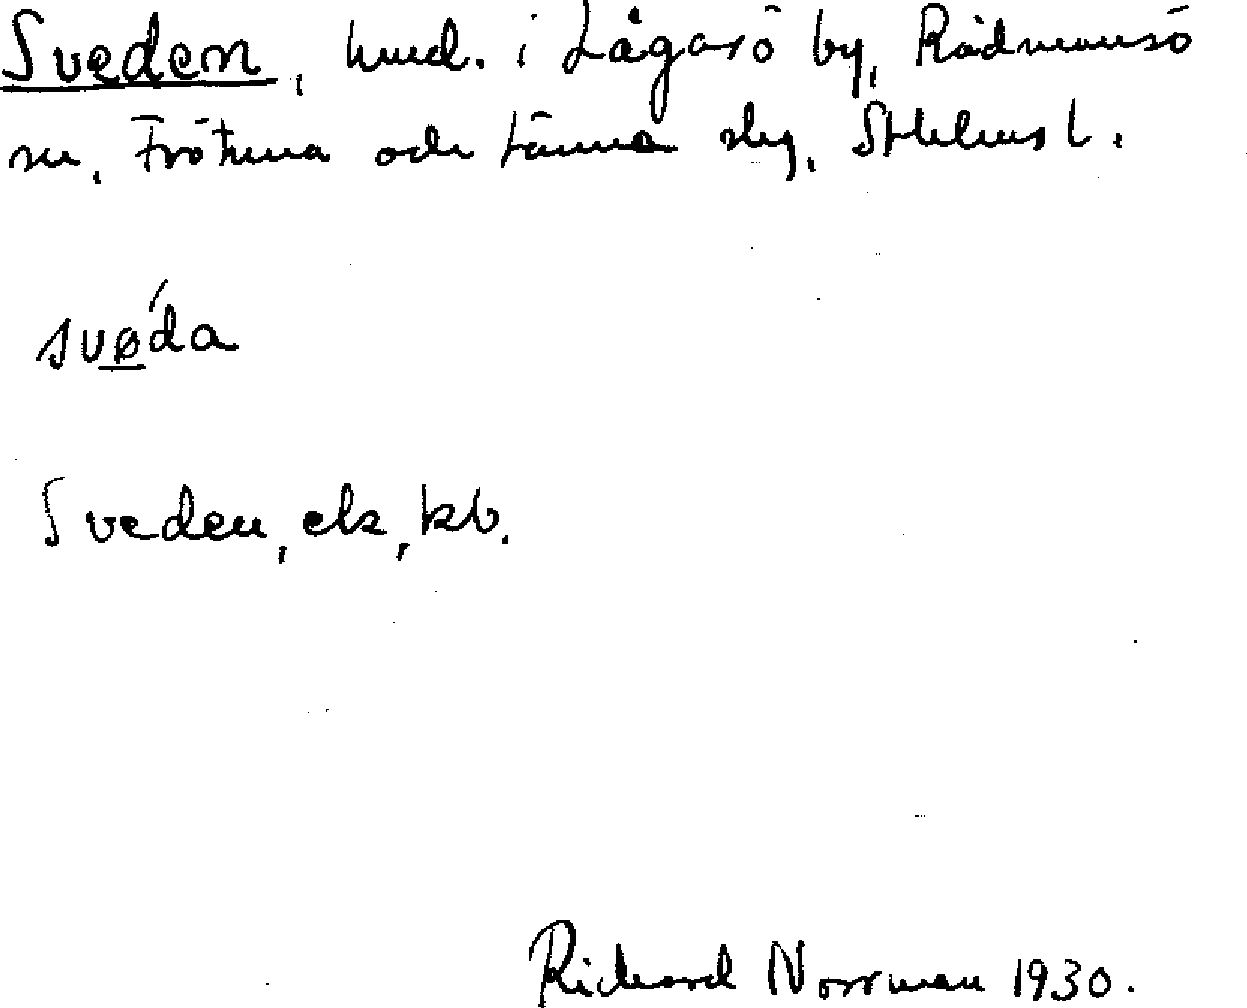 Sveden, hmd. i Lågarö by, Rådmansö
sn, Frötuna och Länna slg, Sthlms l.
svø̱´da
Sveden, ek, kb.
Richard Norrman 1930.